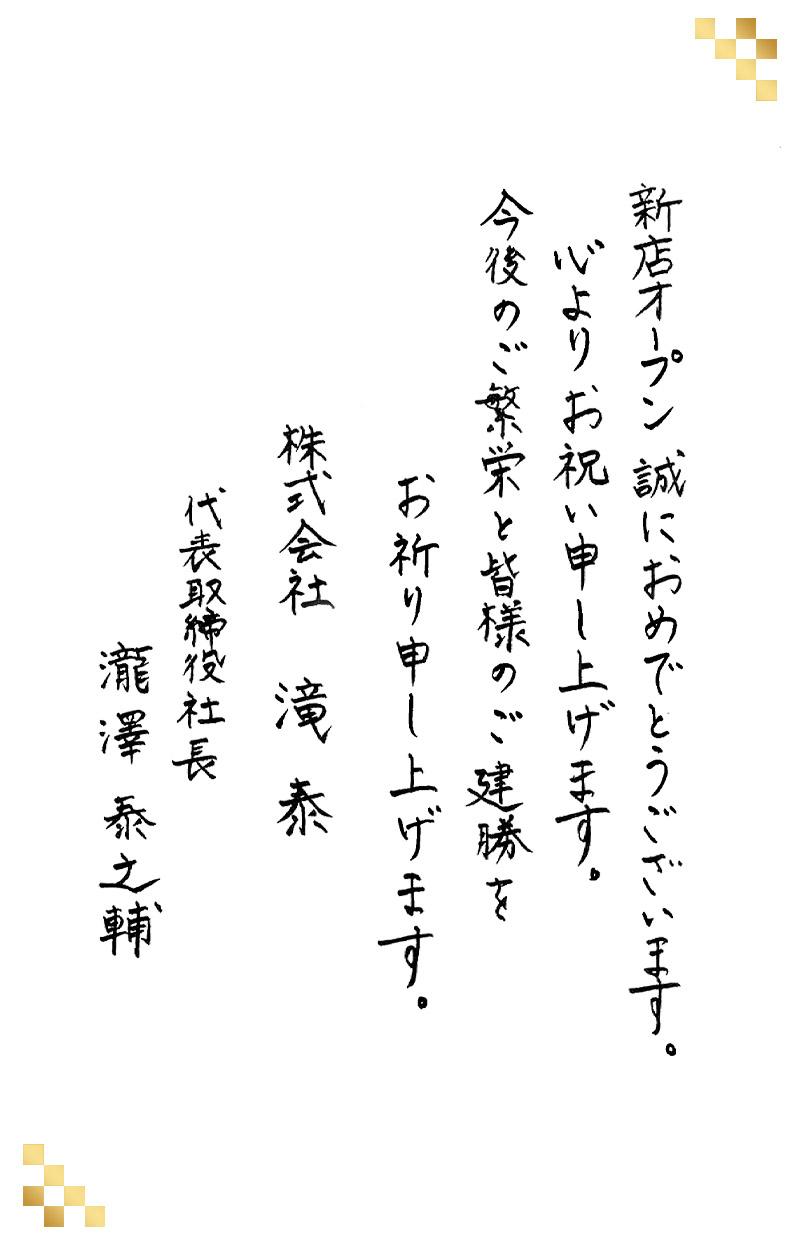 新店オープン 誠におめでとうございます。
心よりお祝い申し上げます。
今後のご繁栄と皆様のご建勝を
お祈り申し上げます。
株式会社 滝泰
代表取締役社長
瀧澤 泰之輔